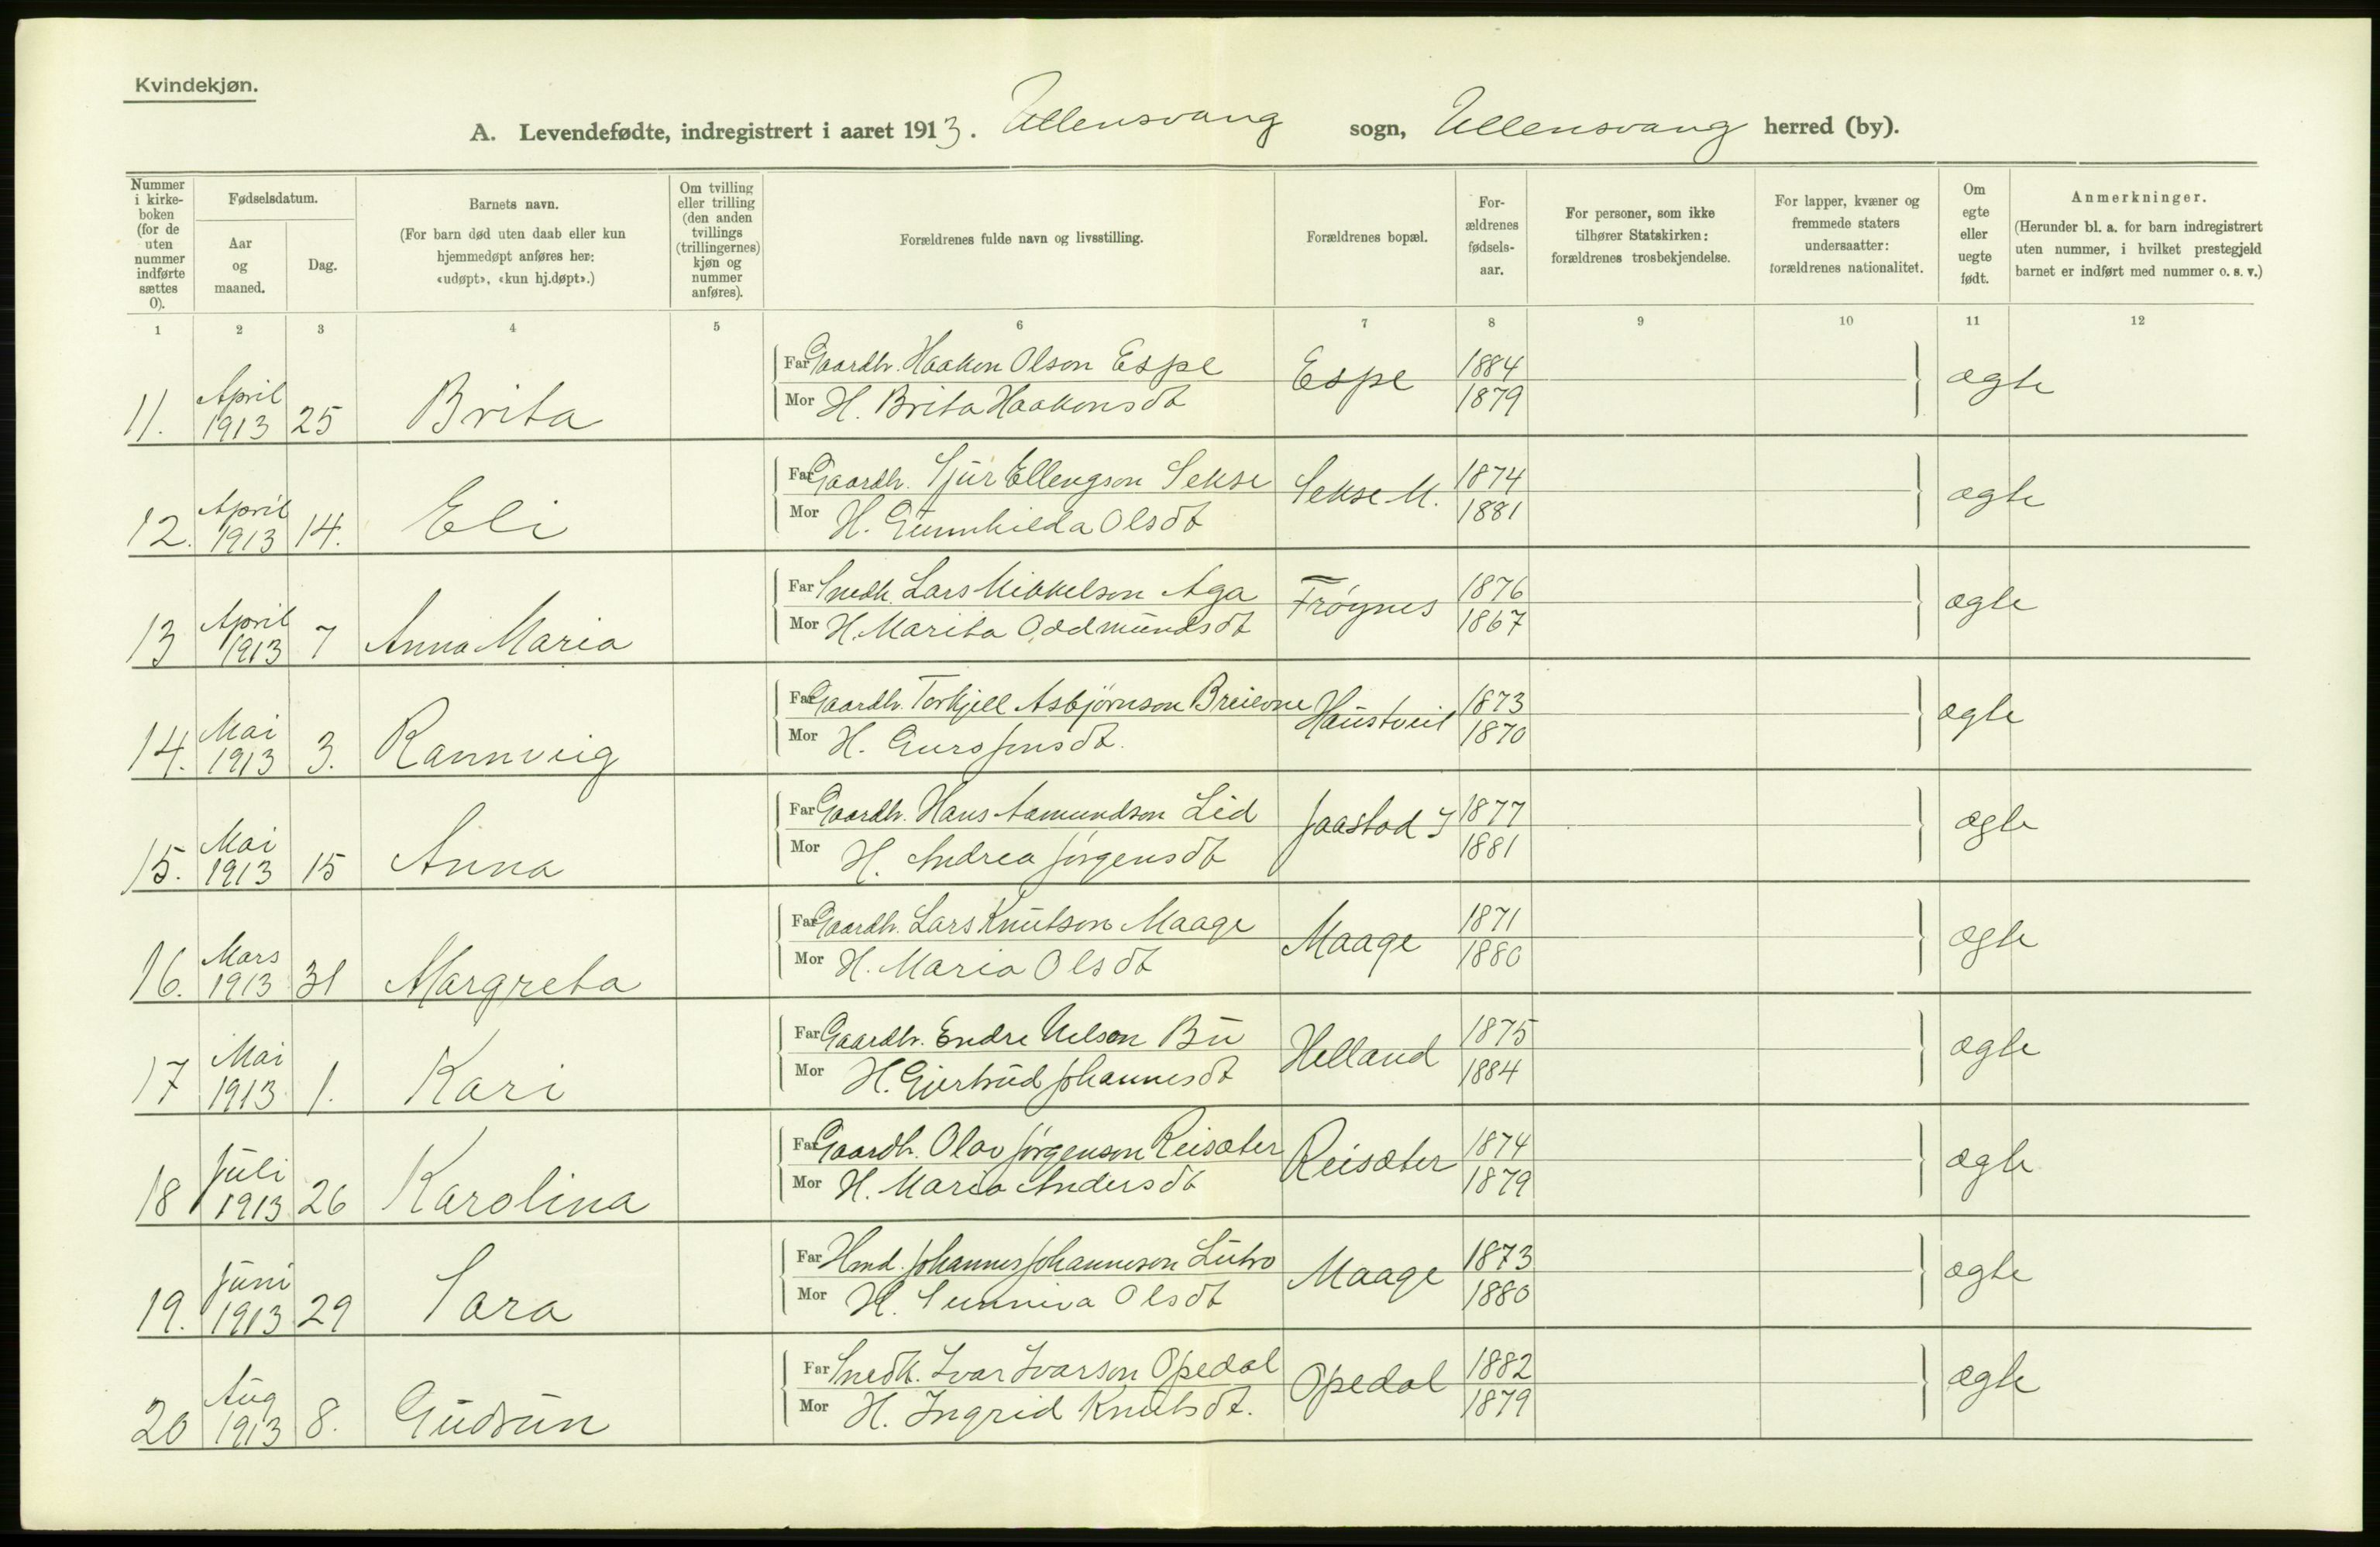 Kvindekjøn.
A. Levendefødte, indregistrert i aaret 1913. Ullensvang sogn, Ullensvang herred (by).
Nummer i kirke-boken (for de uten nummer indførte sættes 0).
Fødselsdatum.
Aar og maaned.
Dag.
Barnets navn.
(For barn død uten daab eller kun hjemmedøpt anføres her: «udøpt», «kun hj.døpt».)
Om tvilling eller trilling (den anden tvillings (trillingernes) kjøn og nummer anføres).
Forældrenes fulde navn og livsstilling.
Forældrenes bopæl.
For-ældrenes fødsels-aar.
For personer, som ikke tilhører Statskirken: forældrenes trosbekjendelse.
For lapper, kvæner og fremmede staters undersaatter: forældrenes nationalitet.
Om egte eller uegte født.
Anmerkninger.
(Herunder bl. a. for barn indregistrert uten nummer, i hvilket prestegjeld barnet er indført med nummer o. s. v.)
1 2 3 4 5 6 7 8 9 10 11 12
Far Gaardbr. Haakon Olson Espe 1884
11. April 1913 25 Brita Espe ægte
Mor H. Brita Haakonsdt 1879
Far Gaardbr. Sjur Ellengson Sekse 1874
12. April 1913 14. Eli Sekse M. ægte
Mor H. Gunnhilda Olsdt 1881
Far Snedk. Lars Mikkelson Aga 1876
13 April 1913 7 Anna Maria Frøynes ægte
Mor H. Marita Oddmundsdt 1867
Far Gaardbr. Torkjell Asbjørnson Breievne 1873
14. Mai 1913 3. Rannveig Haustveit ægte
Mor H. Guro Jonsdt. 1870
Far Gaardbr. Hans Aamundson Lid 1877
15. Mai 1913 15 Anna Jaastad Y ægte
Mor H. Andrea Jørgensdt 1881
Far Gaardbr. Lars Knutson Maage 1871
16. Mars 1913 31 Margreta Maage ægte
Mor H. Maria Olsdt 1880
Far Gaardbr. Endre Nelson Bu 1875
17 Mai 1913 1. Kari Helland ægte
Mor H. Gjertrud Johannesdt 1884
Far Gaardbr. Olav Jørgenson Reisæter 1874
18 Juli 1913 26 Karolina Reisæter ægte
Mor H. Maria Andersdt 1879
Far Hmd. Johannes Johanneson Lutro 1873
19. Juni 1913 29 Sara Maage ægte
Mor H. Sunniva Olsdt 1880
Far Snedk. Ivar Ivarson Opedal 1882
20 Aug 1913 8. Gudrun Opedal ægte
Mor H. Ingrid Knutsdt. 1879